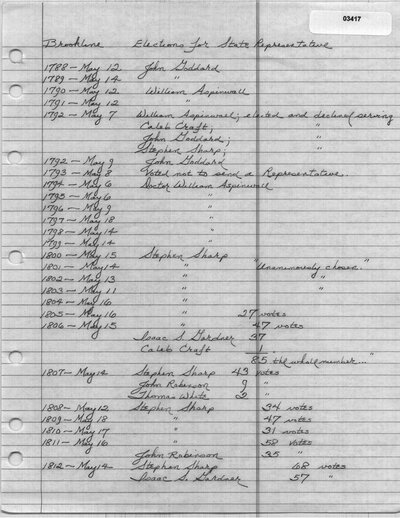 03417
Brookline Elections for State Representative
1788 — May 12 John Goddard
1789 — May 14 "
1790 — May 12 William Aspinwall
1791 — May 12 "
1792 — May 7 William Aspinwall; elected and declined serving
Caleb Craft; "
John Goddard; "
Stephen Sharp; "
1792 — May 9 John Goddard
1793 — May 8 Voted not to send a Representative.
1794 — May 6 Doctor William Aspinwall
1795 — May 6 "
1796 — May 9 "
1797 — May 18 "
1798 — May 14 "
1799 — May 14 "
1800 — May 15 Stephen Sharp
1801 — May 14 " "Unanimously chosen."
1802 — May 13 " "
1803 — May 11 " "
1804 — May 16 "
1805 — May 16 " 27 votes
1806 — May 15 " 47 votes
Isaac S Gardner 37
Caleb Craft 1
85 the whole number..."
1807 — May 14 Stephen Sharp 43 votes
John Robinson 9 "
Thomas White 2 "
1808 — May 12 Stephen Sharp 34 votes
1809 — May 18 " 47 votes
1810 — May 17 " 31 votes
1811 — May 16 " 58 votes
John Robinson 35 "
1812 — May 14 Stephen Sharp 68 votes
Isaac S. Gardner 57 "